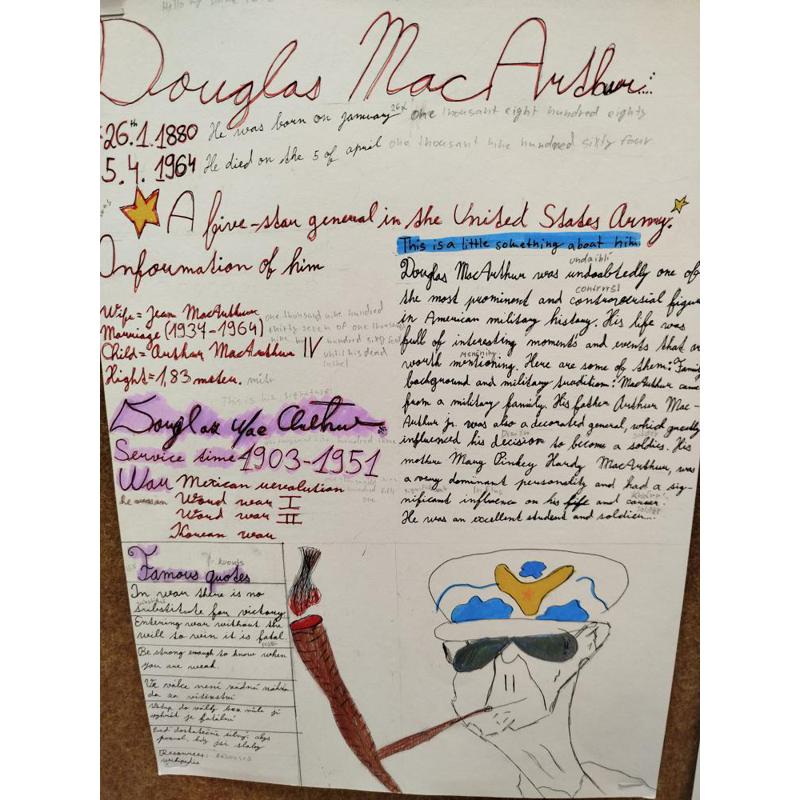 Douglas MacArthur...
26.th 1. 1880 He was born on january 26th one thousand eight hundred eighty
5. 4. 1964 He died on the 5 of april one thousand nine hundred sixty four
A five-star general in the United States Army.
This is a little something about him.
Information of him
Wife= Jean MacArthur one thousand nine hundred
Marriage (1937-1964) thirty seven of one thousand
Child= Arthur MacArthur IV
Hight= 1,83 meter.
This is his signature
Douglas MacArthur
Service time 1903-1951
War Mexican revolution
Word war I
Word war II
Korean war
Douglas MacArthur was undoubtedly one of
the most prominent and controversial figure
in American military history. His life was
full of interesting moments and events that are
worth mentioning. Here are some of them: Family
background and military tradition: MacArthur came
from a military family. His father Arthur Mac-
Arthur jr. was also a decorated general, which greatly
influenced his decision to become a soldier. His
mother Mary Pinkey Hardy MacArthur, was
a very dominant personality and had a sig-
nificant influence on his life and career.
He was an excellent student and soldier...
Famous quotes
In war there is no
substitute for victory.
Entering war without the
will to win it is fatal.
Be strong enough to know when
you are weak.
Ve válce není žádná náhra
da za vítězství
Vstup do války bez vůle ji
vyhrát je fatální
Buď dostatečně silný, abys
poznal, kdy jsi slabý
Resources:
wikipedie